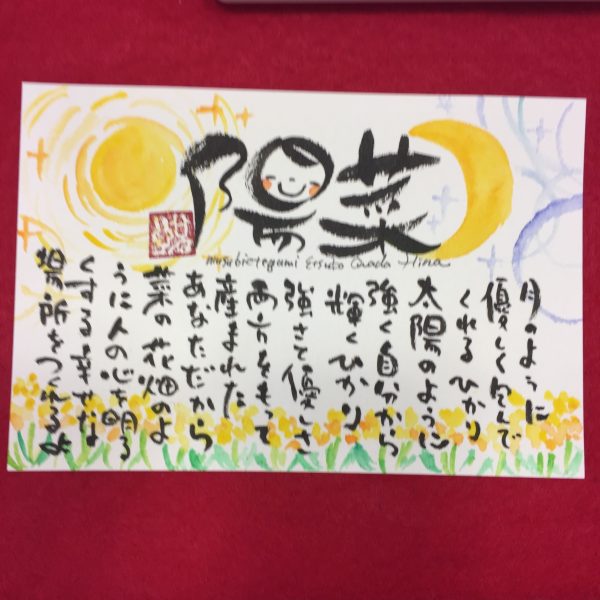 陽菜
Hina
月のように
優しく包んで
くれるひかり
太陽のように
強く自分から
輝くひかり
強さと優しさ
両方をもって
産まれた
あなただから
菜の花畑のよ
うに人の心を明る
くする幸せな
場所をつくれるよ